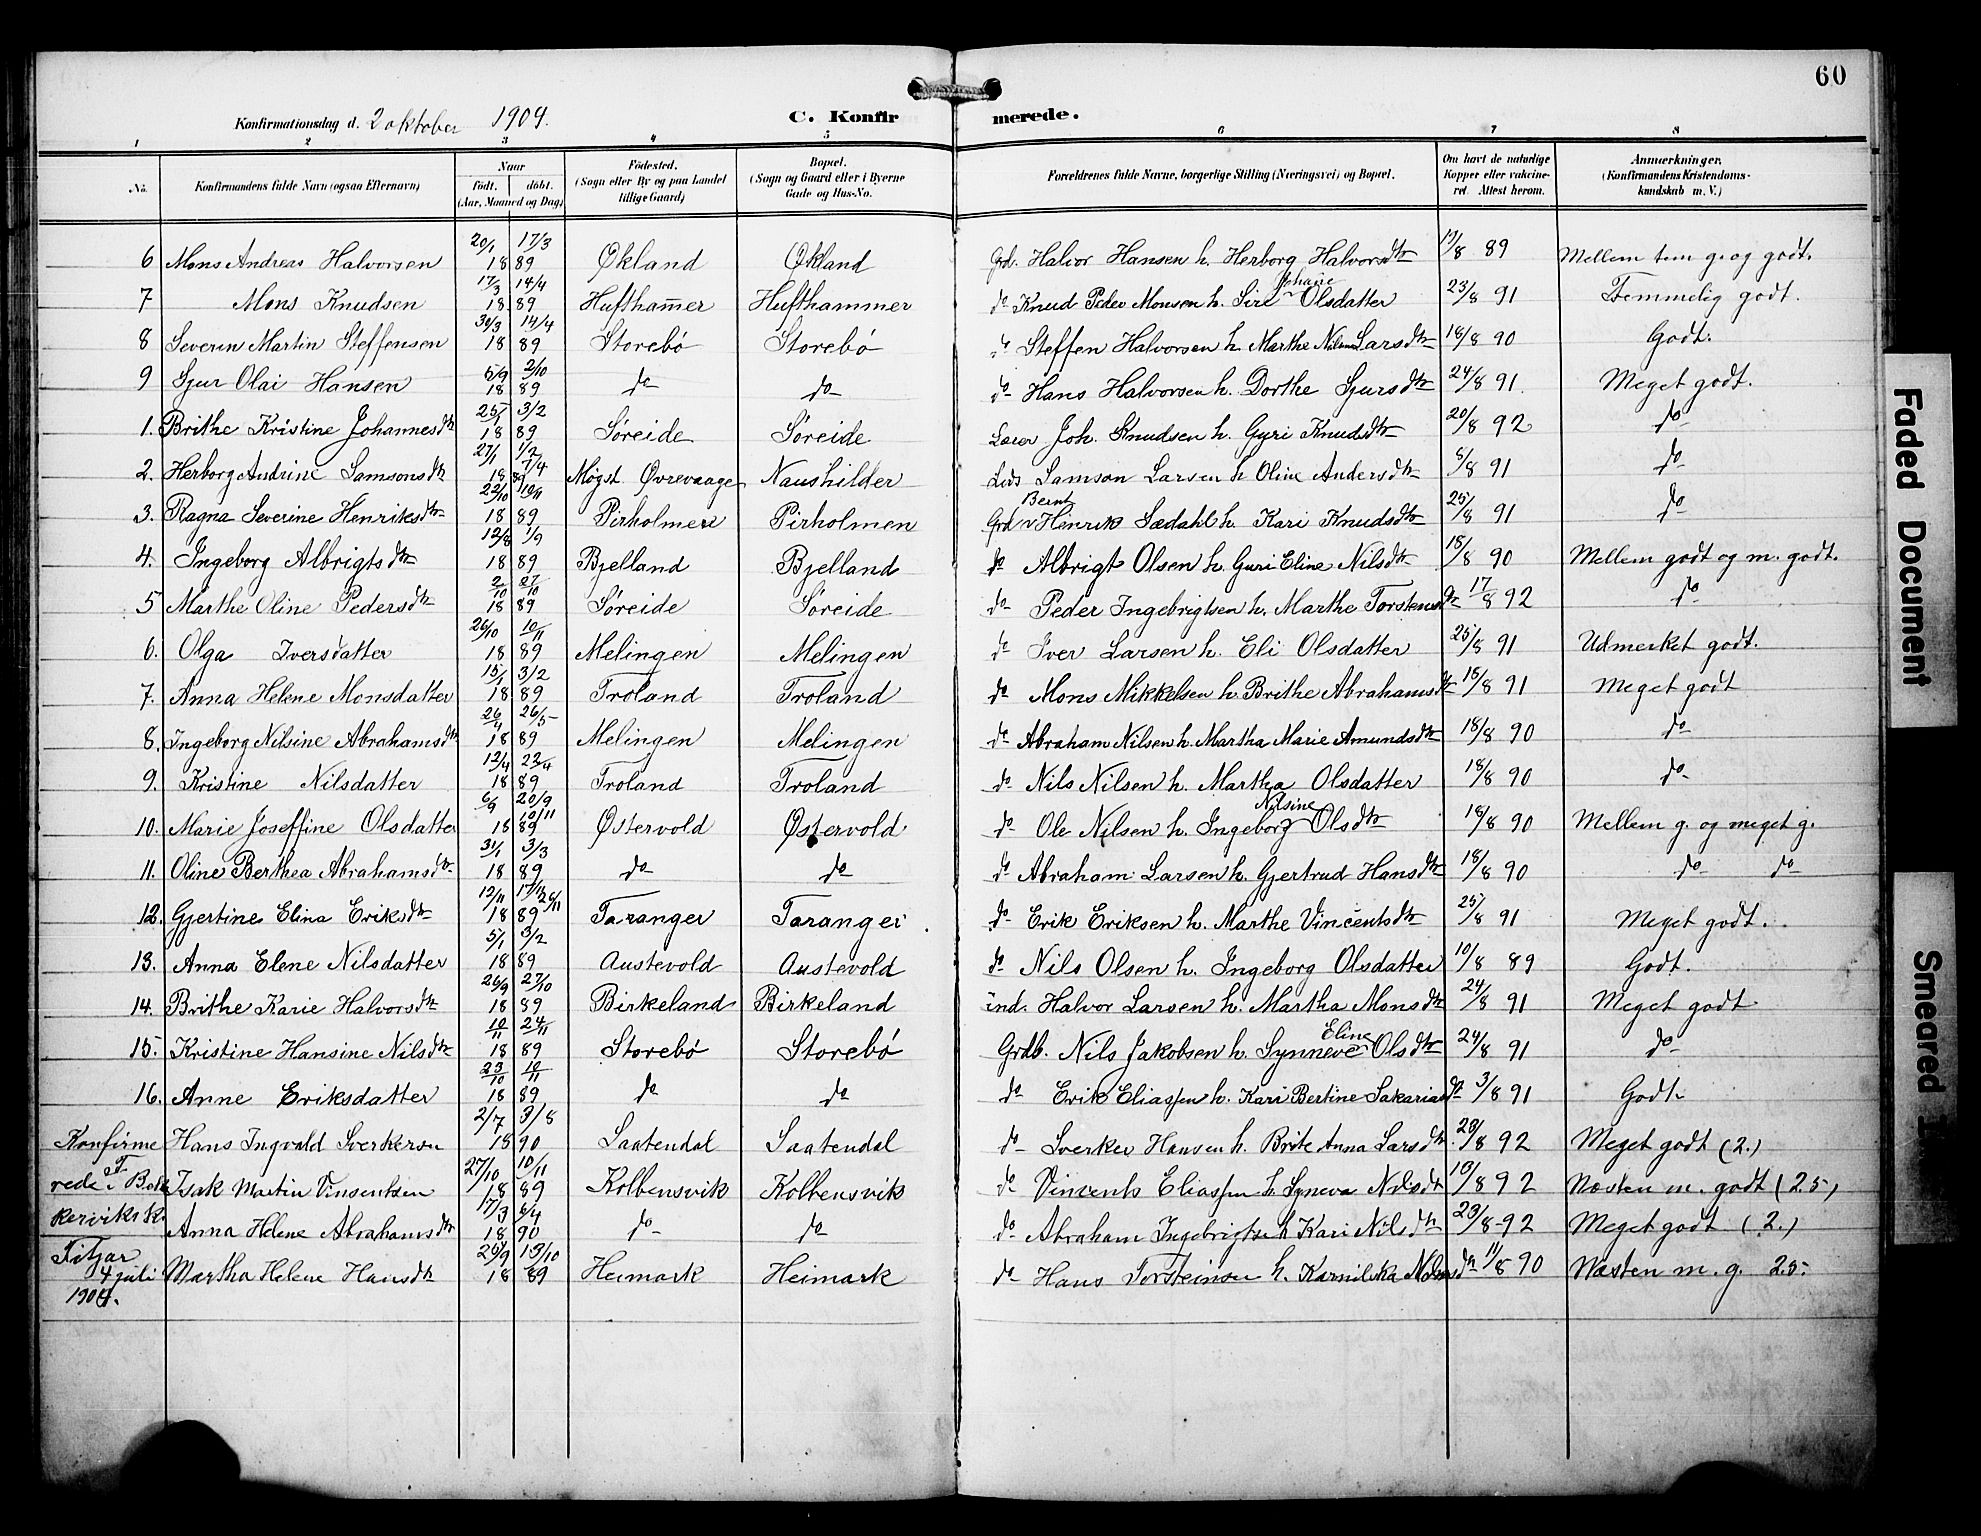 60
Konfirmationsdag d. 2 oktober 1904. C. Konfirmerede.
1 2 3 4 5 6 7 8
No. Konfirmandens fulde Navn (ogsaa Efternavn) Naar født, døbt. (Aar, Maaned og Dag) Fødested. (Sogn eller By og paa Landet tillige Gaard) Bopæl. (Sogn og Gaard eller i Byerne Gade og Hus-No. Forældrenes fulde Navne, borgerlige Stilling (Næringsvei) og Bopæl. Om havt de naturlige Kopper eller vakcineret. Attest herom. Anmærkninger. (Konfirmandens Kristendomskundskab m. V.)
6 Mons Andreas Halvorsen 20/1 17/3 18 89 Økland Økland Grd. Halvor Hansen h. Herborg Halvorsdtr 19/8 89 Mellem tem g. og godt.
7 Mons Knudsen 17/3 14/4 18 89 Huftham̄er Hufthammer do Knud Peder Monsen h. Siri Johane Olsdatter 23/8 91 Temmelig godt.
8 Severin Martin Steffensen 30/3 14/4 18 89 Storebø Storebø do Steffen Halvorsen h. Marthe Larsdtr 18/8 90 Godt.
9 Sjur Olai Hansen 5/9 2/10 18 89 do do do Hans Halvorsen h. Dorthe Sjursdtr 24/8 91. Meget godt.
1. Brithe Kristine Johannesdtr 25/1 3/2 18 89 Søreide Søreide Lærer Joh. Knudsen h. Gyri Knudsdtr 20/8 92 do
2. Herborg Andrine Samsonsdtr 27/1 1/2 7/4 18 89 Møgst Øvrevaage Naushilder Samson Larsen h Oline Andersdtr 8/8 91 do
3. Ragna Severine Henriksdtr 22/10 10/11 18 89 Pirholmen Pirholmen Grd Bernt Hinrik Sædahl h. Kari Knudsdtr 25/8 91 do
4. Ingeborg Albrigtsdtr 12/8 1/9 18 89 Bjelland Bjelland do Albrigt Olsen h. Guri Eline Nilsdtr 18/8 90 Mellem godt og m. godt.
5 Marthe Oline Pedersdtr 2/10 27/10 18 89 Søreide Søreide do Peder Ingebrigtsen h. Marthe Torstensdtr 17/8 92 do
6. Olga Iversdatter 26/10 10/11 18 89 Melingen Melingen do Iver Larsen h. Eli Olsdatter 25/8 91 Udmerket godt.
7. Anna Helene Monsdatter 15/1 3/2 18 89 Troland Troland do Mons Mikkelsen h. Brithe Abrahamsdtr 15/8 91 Meget godt
8. Ingeborg Nilsine Abrahamsdtr 26/4 26/5 18 89 Melingen Melingen do Abraham Nilsen h. Martha Marie Amundsdtr 18/8 90 do
9. Kristine Nilsdatter 12/4 23/4 18 89 Troland Troland do Nils Nilsen h. Martha Olsdatter 18/8 90 do
10. Marie Joseffine Olsdatter 6/9 20/9 10/11 18 89 Østervold Østervold do Ole Nilsen h. Ingeborg Nilsine Olsdtr 18/8 90 Mellem g. og meget g.
11. Oline Berthea Abrahamsdtr 31/1 3/3 18 89 do do do Abraham Larsen h. Gjertrud Hansdtr 18/8 90 do do
12. Gjertine Elina Eriksdtr 12/11 26/11 18 89 Taranger Taranger do Erik Eriksen h. Marthe Vincentsdtr 25/8 91 Meget godt.
13. Anna Elene Nilsdatter 5/1 3/2 18 89 Austevold Austevold do Nils Olsen h. Ingeborg Olsdatter 10/8 89 Godt.
14. Brithe Karie Halvorsdtr 26/9 27/10 18 89 Birkeland Birkeland ind. Halvor Larsen h. Martha Monsdtr 24/8 91 Meget godt
15. Kristine Hansine Nilsdtr 10/11 24/11 18 89 Storebø Storebø Grdb. Nils Jakobsen h. Synneve Eline Olsdtr 24/8 91 do
16. Anne Eriksdatter 23/10 10/11 18 89 do do do Erik Eliassen h. Kari Bertine Sakariasdtr 3/8 91 Godt.
Konfirme Hans Ingvald Sverkersen 2/7 3/8 18 90 Laatendal Saatendal do Sverker Hansen h. Brite Anna Larsdtr 20/8 92 Meget godt (2.)
rede i Bek Isak Martin Vinsentsen 27/10 10/11 18 89 Kolbensvik Kolbensvik do Vincents Eliassen h Syneva Nilsdt 10/8 92 Næsten m. godt (2.5)
kervik k. Anna Helene Abrahamsdtr 17/3 6/4 18 90 do do do Abraham Ingebrigtsen h Kari Nilsdtr 23/8 92 Meget godt (2.)
Fitjar 4 juli 1904. Martha Helene Hansdtr 26/9 13/10 18 89 Heimark Heimark do Hans Torsteinsen h. Karnilska dtr 11/8 90 Næsten m. g. 2.5.
Faded Document
Smeared